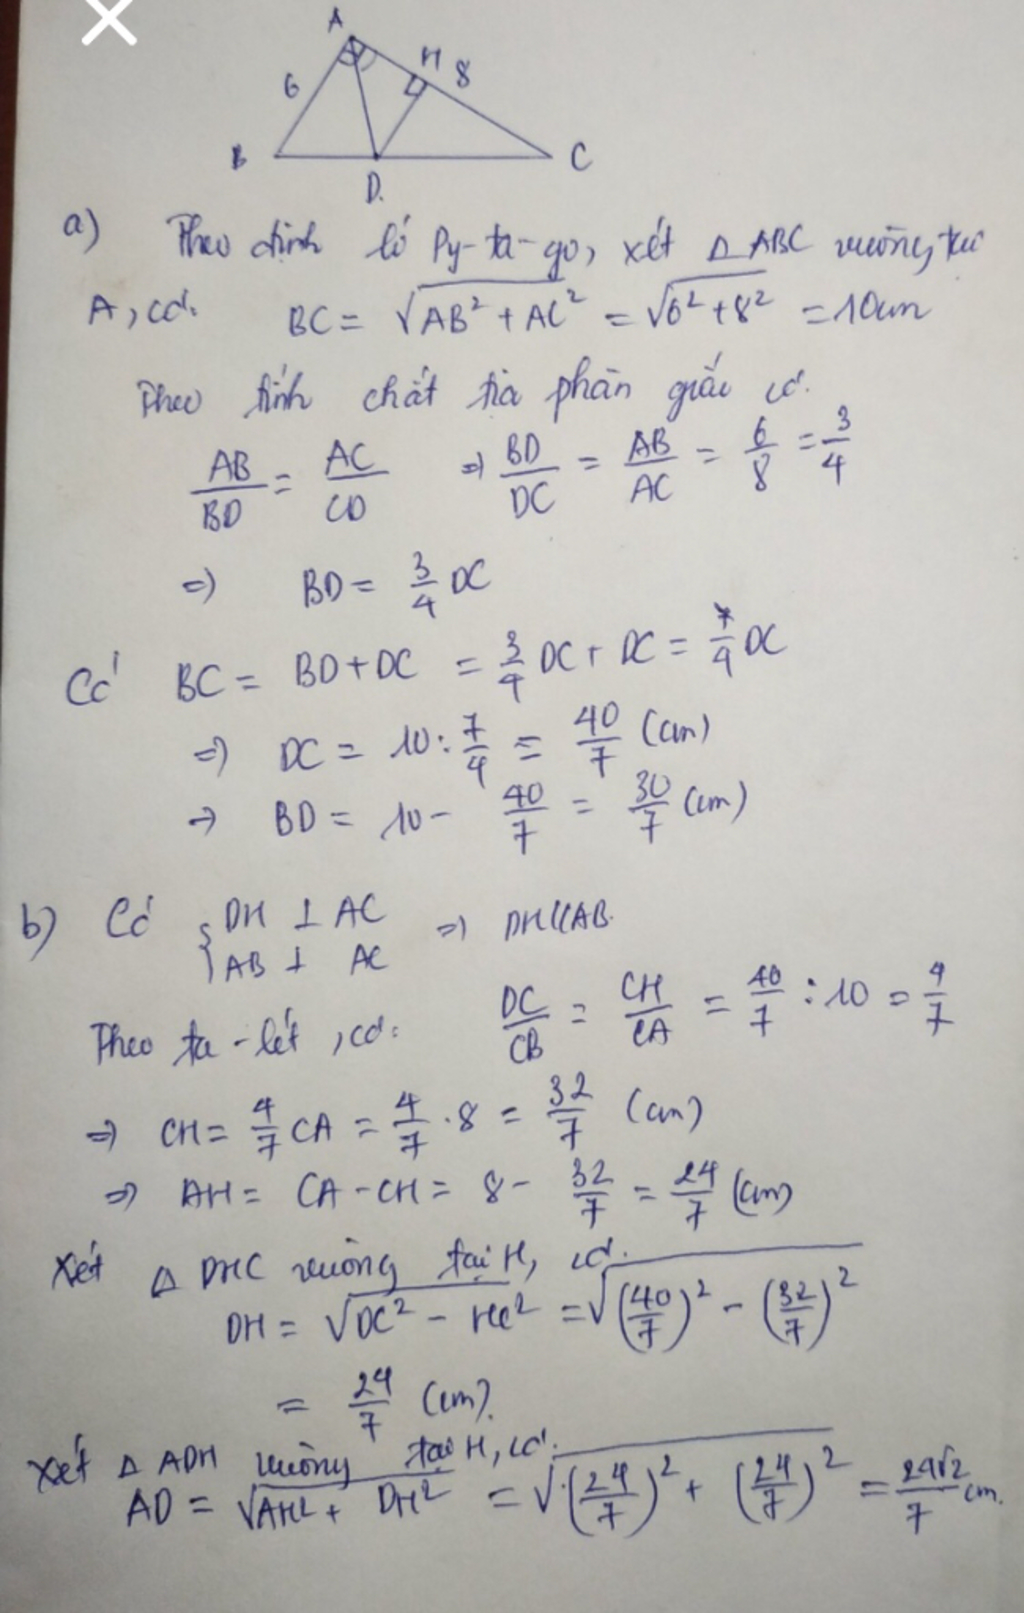 A
H
6
8
B
D.
C
a) Theo định lí Py-ta-go, xét Δ ABC vuông tại
A, có: BC = √(AB² + AC²) = √(6² + 8²) = 10cm
Theo tính chất tia phân giác có.
AB/BD = AC/CD ⇒ BD/DC = AB/AC = 6/8 = 3/4
⇒ BD = 3/4 DC
Có BC = BD + DC = 3/4 DC + DC = 7/4 DC
⇒ DC = 10 : 7/4 = 40/7 (cm)
→ BD = 10 - 40/7 = 30/7 (cm)
b) Có { DH ⊥ AC
AB ⊥ AC ⇒ DH // AB.
Theo ta-lét, có: DC/CB = CH/CA = 40/7 : 10 = 4/7
⇒ CH = 4/7 CA = 4/7 . 8 = 32/7 (cm)
⇒ AH = CA - CH = 8 - 32/7 = 24/7 (cm)
Xét Δ DHC vuông tại H, có.
DH = √(DC² - HC²) = √((40/7)² - (32/7)²)
= 24/7 (cm).
Xét Δ ADH vuông tại H, có.
AD = √(AH² + DH²) = √((24/7)² + (24/7)²) = 24√2/7 cm.